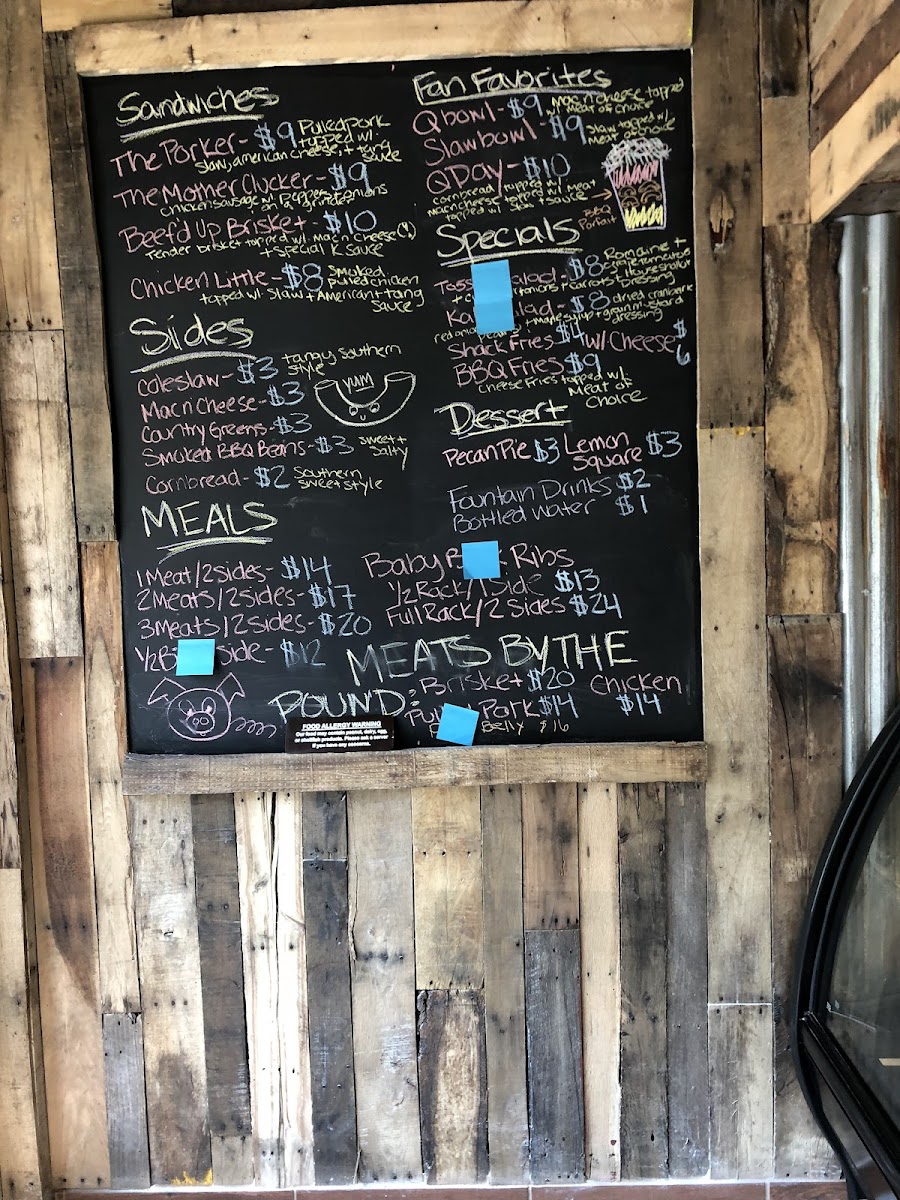 Sandwiches
The Porker - $9 Pulled pork
topped w/
slaw, american cheese, + tang
sauce
The Mother Clucker - $9
chicken sausage w/ peppers + onions
on a grinder
Beef'd Up Brisket - $10
Tender brisket topped w/ Mac n Cheese (!)
+ special K sauce
Chicken Little - $8 smoked
pulled chicken
topped w/ slaw + American + tang
sauce
Sides
Coleslaw - $3 tangy southern
style
Mac n' Cheese - $3
Country Greens - $3
Smoked BBQ Beans - $3 sweet +
salty
Cornbread - $2 Southern
sweet style
YUM
MEALS
1 Meat / 2 Sides - $14
2 Meats / 2 Sides - $17
3 Meats / 2 Sides - $20
1/2 B Side - $12
Fan Favorites
Q bowl - $9 Mac n cheese topped
w/ meat of choice
Slawbowl - $9 slaw topped w/
meat of choice
Q Day - $10
cornbread topped w/ meat
mac n cheese topped w/ meat
topped w/ slaw + sauce
BBQ
Parfait
Specials
Toss alad - $8 Romaine +
grape tomatoes
+ c onions + carrots + House
Dressing
Ka alad - $8 dried cranberry
red onion + maple syrup + grain mustard
dressing
Shack Fries $4 w/ Cheese $6
BBQ Fries $9
cheese fries topped w/
Meat of
Choice
Dessert
Pecan Pie $3 Lemon
Square $3
Fountain Drinks $2
Bottled Water $1
Baby B k Ribs
1/2 Rack / 1 Side $13
Full Rack / 2 Sides $24
MEATS BY THE
POUND: Brisket $20 Chicken
$14
Pul Pork $14
Belly $16
FOOD ALLERGY WARNING
Our food may contain peanut, dairy, egg,
or shellfish products. Please ask a server
if you have any concerns.